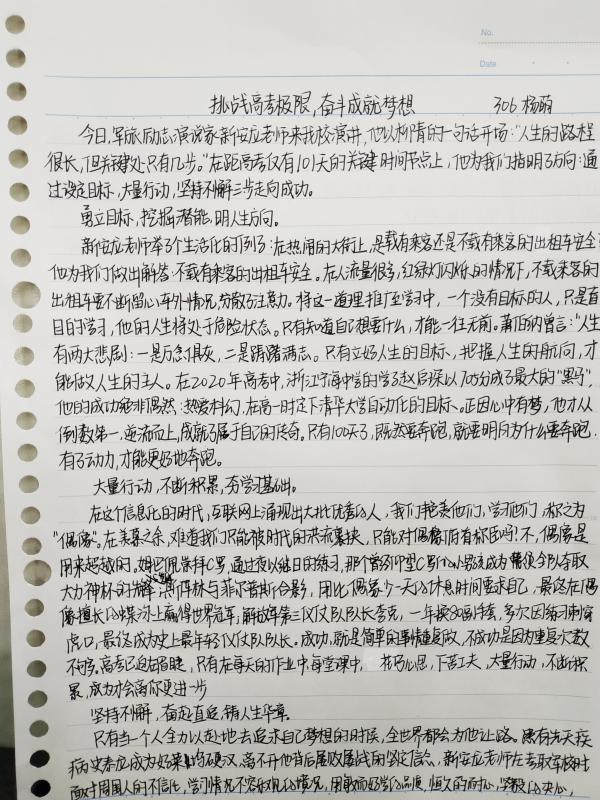 No.
Date
挑战高考极限,奋斗成就梦想 306 杨萌
今日,军旅励志演说家靳安应老师来我校演讲,他以柳青的一句话开场:"人生的路程
很长,但关键处只有几步。"在距高考仅有101天的关键时间节点上,他为我们指明了方向:通
过设定目标,大量行动,坚持不懈三步走向成功。
勇立目标,挖掘潜能,明人生方向。
老师举了个生活化的例子:在热闹的大街上,是载有乘客还是不载有乘客的出租车安全?
他为我们做出解答:不载有乘客的出租车安全。在人流量很多,红绿灯闪烁的情况下,不载乘客的
出租车要不断留心车外情况,分散了注意力。将这一道理推广至学习中,一个没有目标的人,只是盲
目的学习,他的人生将处于危险状态。只有知道自己想要什么,才能一往无前。萧伯纳曾言:"人生
有两大悲剧:一是万念俱灰,二是踌躇满志。只有立好人生的目标,把握人生的航向,才
能做人生的主人。在2020年高考中,浙江宁海中学的学子赵启琛以700分成了最大的"黑马",
他的成功绝非偶然:热爱科幻,在高一时定下清华大学自动化的目标。正因心中有梦,他才从
倒数第一,逆流而上,成就了属于自己的传奇。只有100天了,既然要奔跑,就要明白为什么要奔跑.
有了动力,才能更好地奔跑。
大量行动,不断积累,夯学习基础。
在这个信息化的时代,互联网上涌现出大批优秀的人,我们艳羡他们,学习他们,称之为
"偶像"。在羡慕之余,难道我们只能被时代的洪流裹挟,只能对偶像俯首称臣吗?不,偶像是
用来超越的。崇拜C罗,通过夜以继日的练习,那个曾仰望C罗的小男孩成为帮助全队夺取
大力神杯的先锋;林与菲尔普斯合影,用比偶像少一天的休息时间要求自己,最终在偶
像擅长的蝶泳上赢得世界冠军,解放军第三仪仗队队长李克,一年换80副手套,多次因练习刺穿
虎口,最终成为史上最年轻仪仗队队长。成功,就是简单的事情重复做,不成功是因为重复次数
不够多。高考已迫在眉睫,只有在每天的作业中,每堂课中,花巧心思,下苦工夫,大量行动,不断积
累,成功才会离你更进一步
坚持不懈,奋起直追,铸人生华章。
只有当一个人全力以赴地去追求自己梦想的时候,全世界都会为他让路。患有先天疾
病安应成为好莱坞硬汉,离不开他背后屡败屡战的坚定信念。老师在考取军校时
面对周围人的不信任,学习情况不容乐观的情况,用勤而好学的态度,恒久的耐心,坚毅的决心,